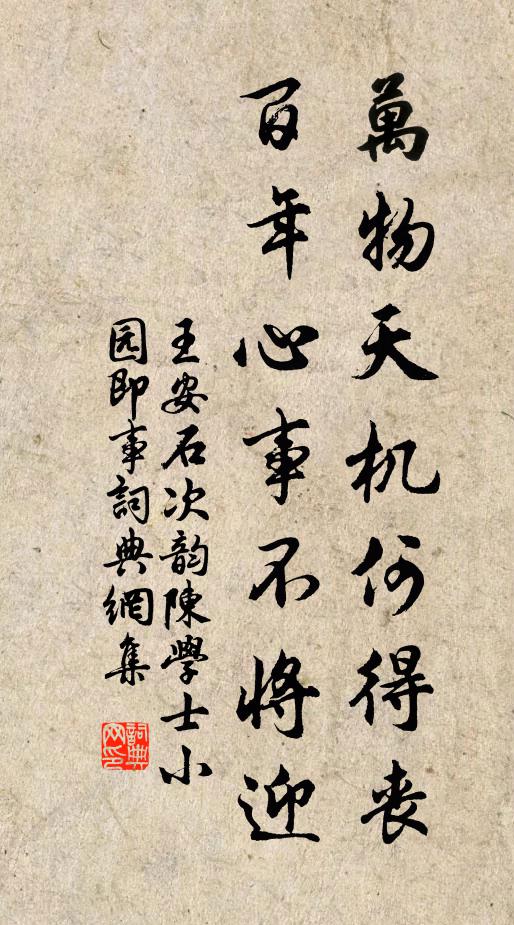 萬物天机何得喪
百年心事不将迎
王安石次韵陳學士小
园即事詞典網集
詞典
网印